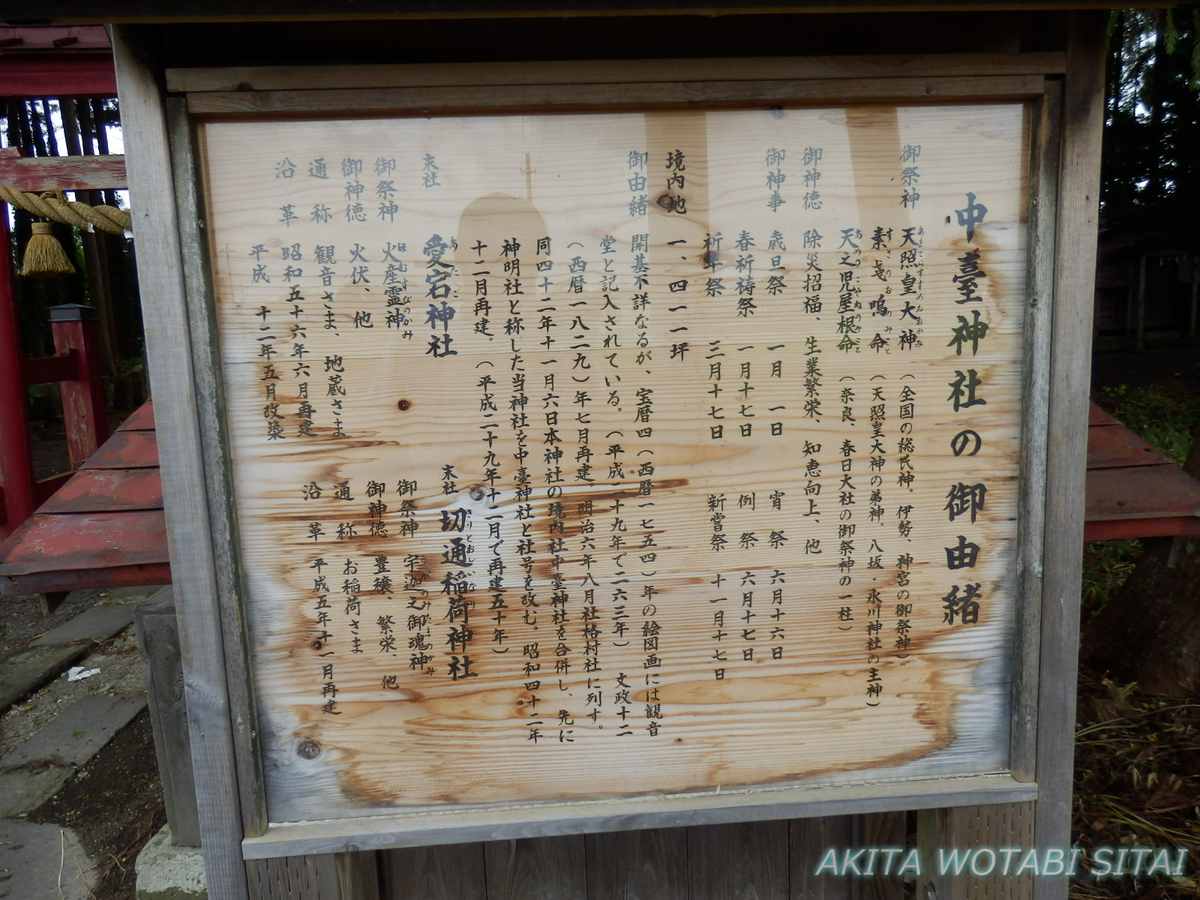 中臺神社の御由緒
御祭神 天照皇大神 (全国の総氏神、伊勢、神宮の御祭神)
素戔嗚命 (天照皇大神の弟神、八坂・氷川神社の主神)
天之児屋根命 (奈良、春日大社の御祭神の一柱)
御神徳 除災招福、生業繁栄、知恵向上、他
御神事 歳旦祭 一月 一日 宵祭 六月十六日
春祈祷祭 一月十七日 例祭 六月十七日
祈年祭 三月十七日 新嘗祭 十一月十七日
境内地 一、四一一坪
御由緒 開基不詳なるが、宝暦四(西暦一七五四)年の絵図画には観音
堂と記入されている。(平成二十九年で二六三年) 文政十二
(西暦一八二九)年七月再建、明治六年八月社格村社に列す。
同四十二年十一月六日本神社の境内社中臺神社を合併し、先に
神明社と称した当神社を中臺神社と社号を改む。昭和四十二年
十二月再建。(平成二十九年十二月で再建五十年)
末社 愛宕神社
御祭神 火産霊神
御神徳 火伏、他
通称 観音さま、地蔵さま
沿革 昭和五十六年六月再建
平成 十二年五月改築
末社 切通稲荷神社
御祭神 宇迦之御魂神
御神徳 豊穣、繁栄、他
通称 お稲荷さま
沿革 平成五年十一月再建
AKITA WOTABI SITAI